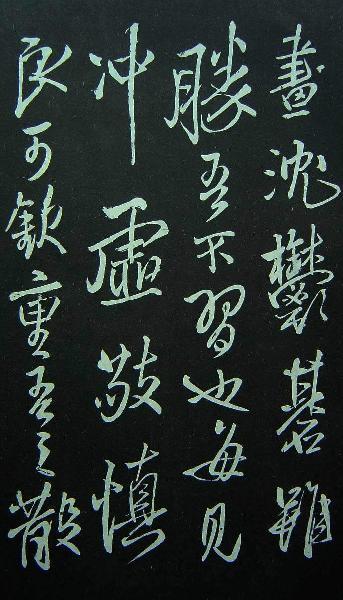 畫沈鬱甚雖
勝吾不習也每見
冲虛敬慎
良可欽重吾之散